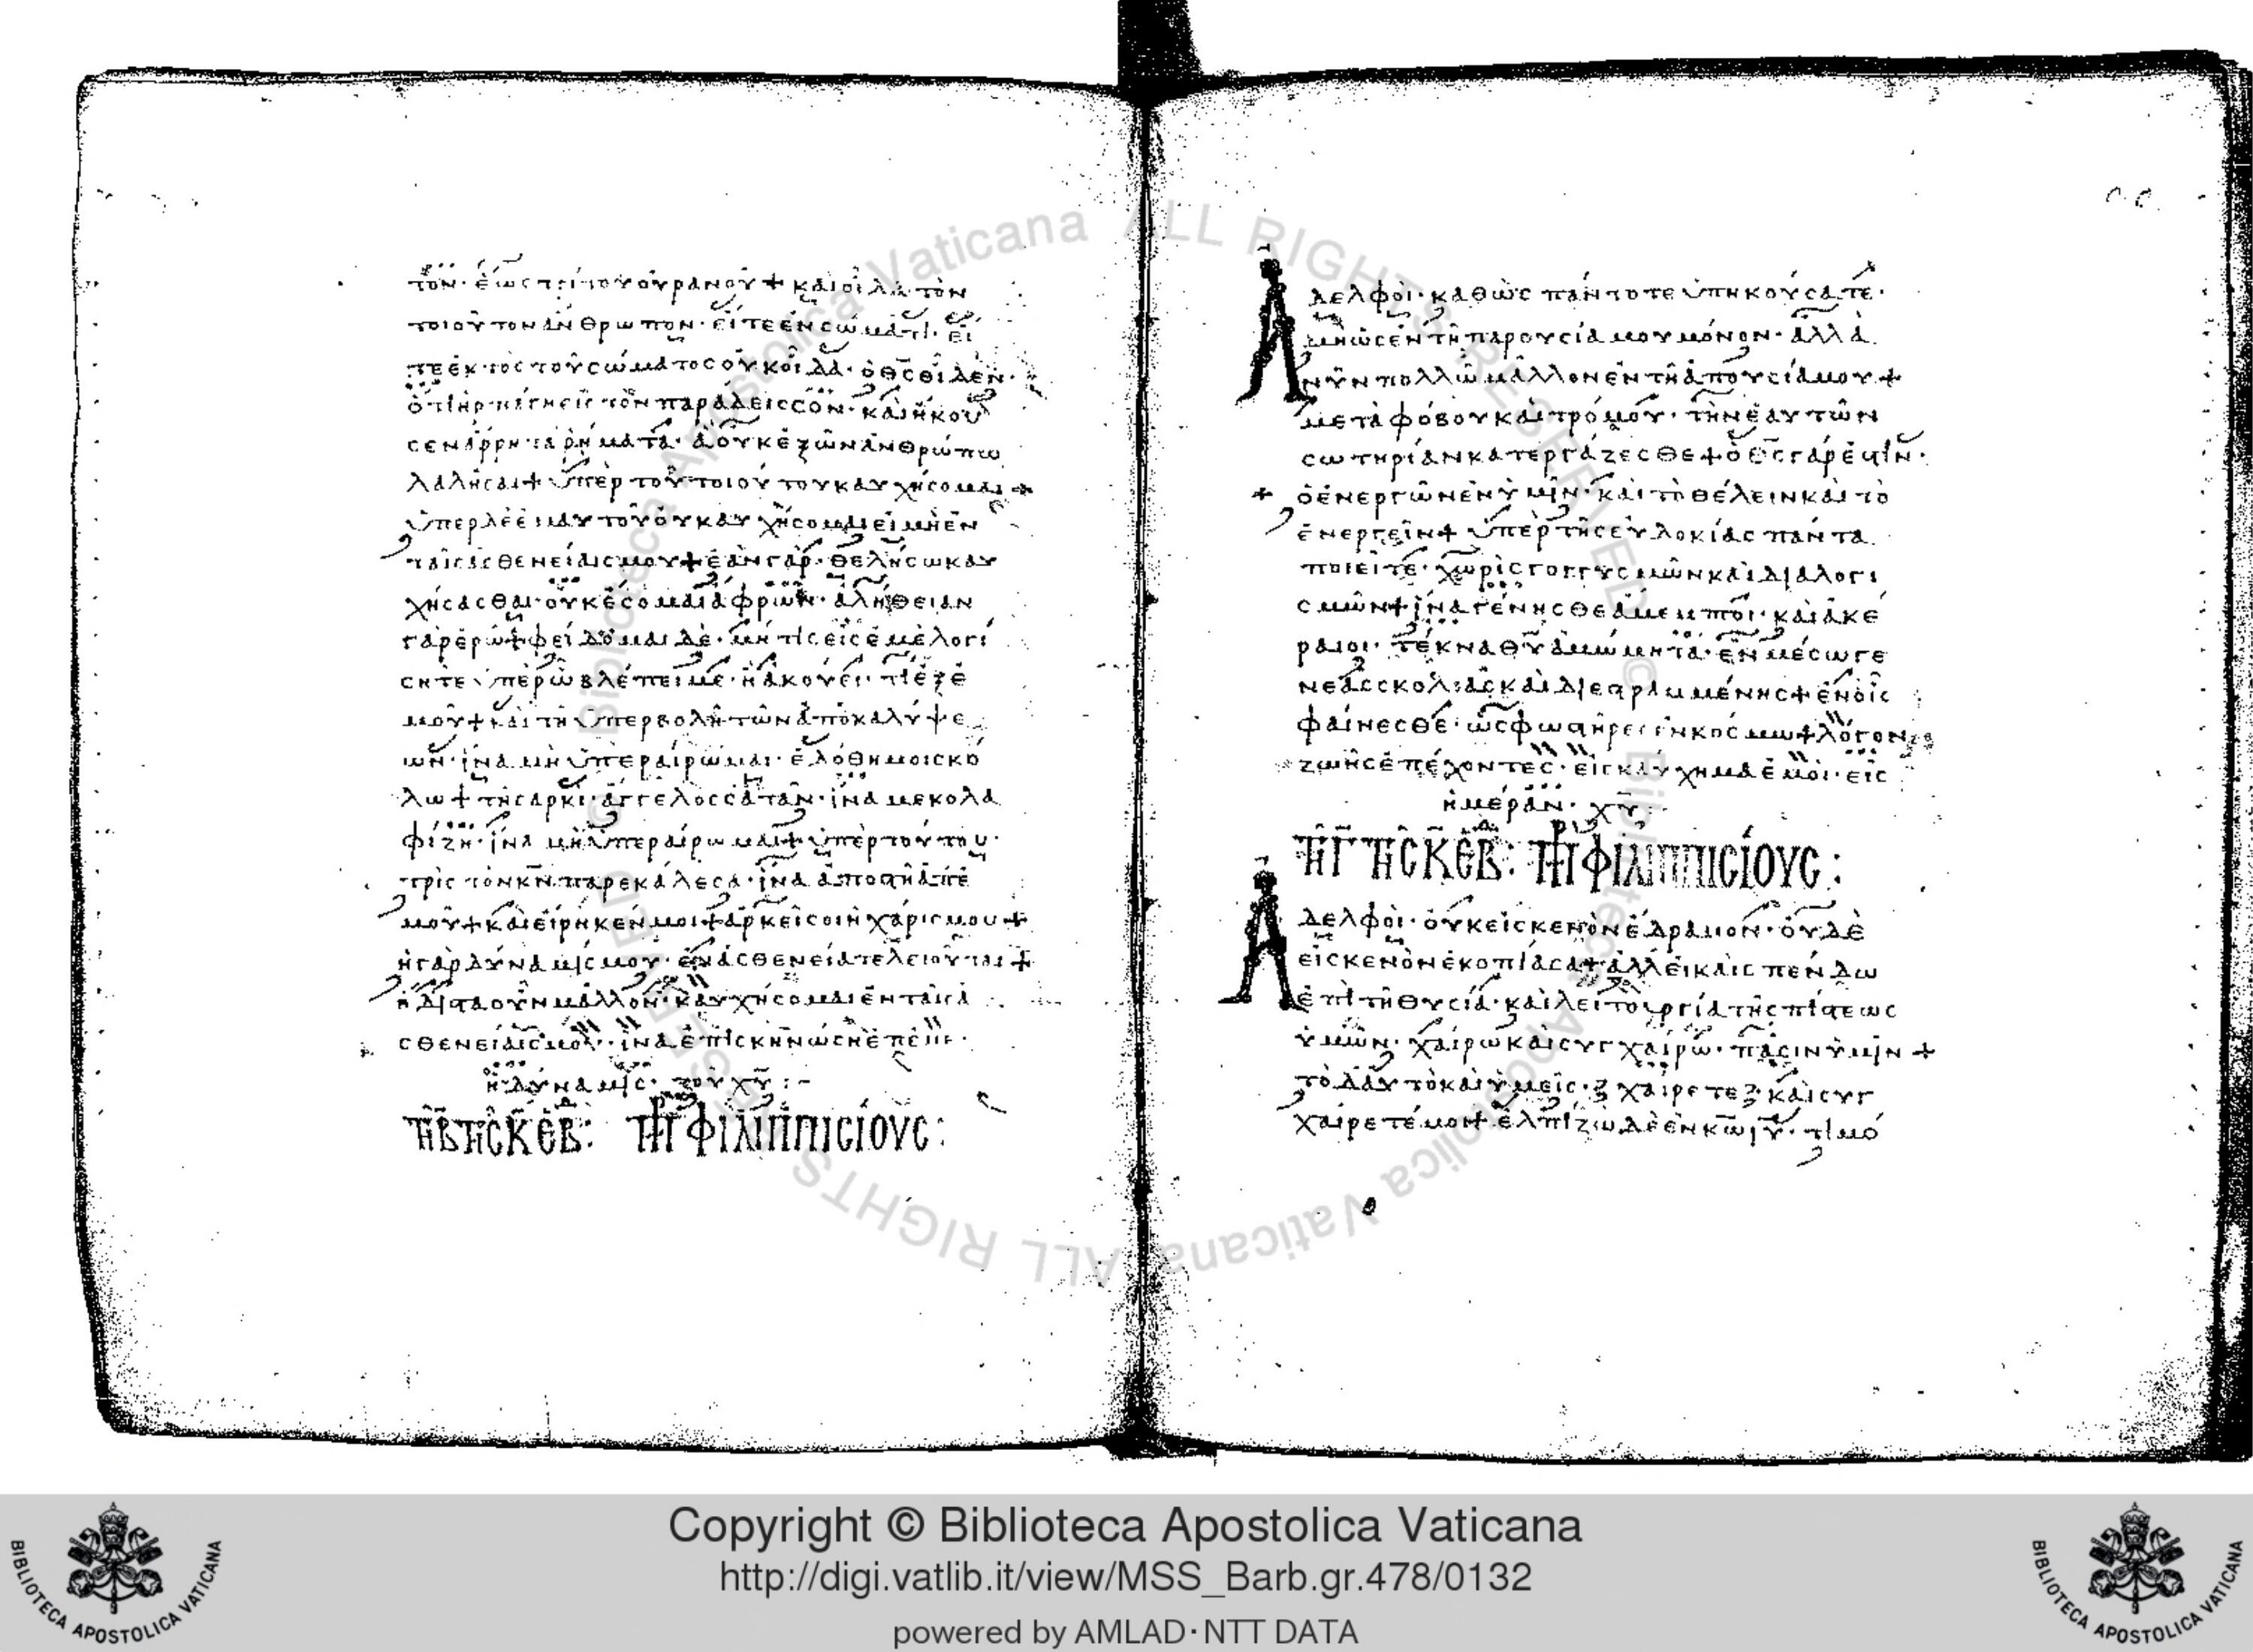 τὸν· ἕως τρίτου οὐρανοῦ + καὶ οἶδα τὸν
τοιοῦτον ἄνθρωπον· εἴτε ἐν σώματι· εἴ
τε ἐκτὸς τοῦ σώματος οὐκ οἶδα· ὁ θς οἶδεν·
ὅτι ἡρπάγη εἰς τὸν παράδεισσον· καὶ ἤκου
σεν ἄρρητα ῥήματα· ἃ οὐκ ἐξὼν ἀνθρώπω
λαλῆσαι + ὑπὲρ τοῦ τοιούτου καυχήσομαι +
ὑπὲρ δὲ ἐμαυτοῦ οὐ καυχήσομαι εἰ μὴ ἐν
ταῖς ἀσθενείαις μου + ἐὰν γὰρ· θελήσω καυ
χήσασθαι· οὐκ ἔσομαι ἄφρων· ἀλήθειαν
γὰρ ἐρῶ + φείδομαι δὲ· μή τις εἰς ἐμὲ λογί
σητε ὑπὲρ ὃ βλέπει με· ἢ ἀκούει τι ἐξ ἐ
μοῦ + καὶ τῆ ὑπερβολῆ τῶν ἀποκαλύψε
ων· ἵνα μὴ ὑπεραίρωμαι· ἐδόθη μοι σκό
λω + τῆ σαρκὶ· ἄγγελος σατᾶν· ἵνα με κολα
φίζη· ἵνα μὴ ὑπεραίρωμαι + ὑπὲρ τούτου·
τρὶς τὸν κν παρεκάλεσα· ἵνα ἀποστῆ ἀπ ἐ
μοῦ + καὶ εἴρηκέν μοι + ἀρκεῖ σοι ἡ χάρις μου +
ἡ γὰρ δύναμίς μου· ἐν ἀσθενεία τελειοῦται +
ἥδιστα οὖν μᾶλλον· καυχήσομαι ἐν ταῖς ἀ
σθενείαις μου· ἵνα ἐπισκηνώση ἐπ ἐμὲ·
ἡ δύναμις· τοῦ χυ :-
τῆ β τῆς κς ἑβ: πρ φιλιππισίους:
Ἀδελφοὶ· καθὼς πάντοτε ὑπηκούσατε·
μὴ ὡς ἐν τῆ παρουσία μου μόνον· ἀλλὰ
νῦν πολλῶ μᾶλλον ἐν τῆ ἀπουσία μου +
μετὰ φόβου καὶ τρόμου· τὴν ἑαυτῶν
σωτηρίαν κατεργάζεσθε + ὁ θς γάρ ἐστὶν·
+ ὁ ἐνεργῶν ἐν ὑμῖν· καὶ τὸ θέλειν καὶ τὸ
ἐνεργεῖν + ὑπὲρ τῆς εὐδοκίας πάντα
ποιεῖτε· χωρὶς γογγυσμῶν καὶ διαλογι
σμῶν + ἵνα γένησθε ἄμεμπτοι· καὶ ἀκέ
ραιοι· τέκνα θυ ἀμώμητα· ἐν μέσω γε
νεᾶς σκολιᾶς καὶ διεστραμμένης + ἐν οἷς
φαίνεσθε· ὡς φωστῆρες ἐν κόσμω + λόγον
ζωῆς ἐπέχοντες· εἰς καύχημα ἐμοὶ· εἰς
ἡμέραν· χυ :-
τῆ γ τῆς κς ἑβ: πρ φιλιππισίους:
Ἀδελφοὶ· οὐκ εἰς κενὸν ἔδραμον· οὐδὲ
εἰς κενὸν ἐκοπίασα + ἀλλ εἰ καὶ σπένδω
ἐπὶ τῆ θυσία· καὶ λειτουργία τῆς πίστεως
ὑμῶν· χαίρω καὶ συγχαίρω· πᾶσιν ὑμῖν +
τὸ δ αυτὸ καὶ ὑμεῖς· χαίρετε καὶ συγ
χαίρετέ μοι + ἐλπίζω δὲ ἐν κω ιυ· τιμό
Copyright © Biblioteca Apostolica Vaticana
http://digi.vatlib.it/view/MSS_Barb.gr.478/0132
powered by AMLAD·NTT DATA
BIBLIOTECA APOSTOLICA VATICANA
BIBLIOTECA APOSTOLICA VATICANA